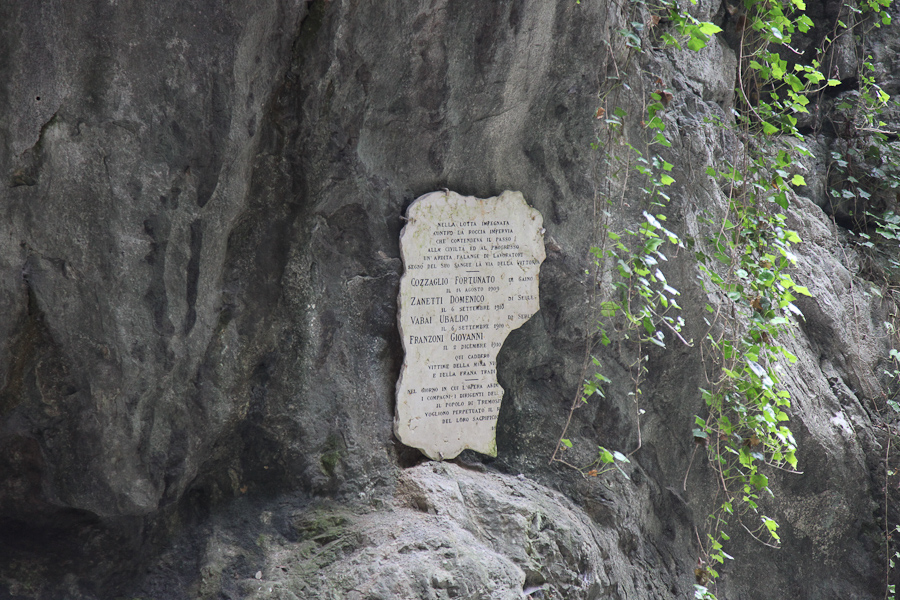 NELLA LOTTA IMPEGNATA
CONTRO LA ROCCIA IMPERVIA
CHE CONTENDEVA IL PASSO
ALLA CIVILTÀ ED AL PROGRESSO
UN'ARDITA FALANGE DI LAVORATORI
SEGNÒ DEL SUO SANGUE LA VIA DELLA VITTORIA
COZZAGLIO FORTUNATO
IL 14 AGOSTO 1909
ZANETTI DOMENICO DI
IL 6 SETTEMBRE
VABAI UBALDO DI
IL 6 SETTEMBRE
FRANZONI GIOVANNI
IL 2 DICEMBRE 1910
QUI CADDERO
VITTIME DELLA MINA
E DELLA FRANA TRADI
NEL GIORNO IN CUI L'OPERA
I COMPAGNI - I DIRIGENTI
IL POPOLO DI TREMOSI
VOGLIONO PERPETUATO IL
DEL LORO SACRIFICIO